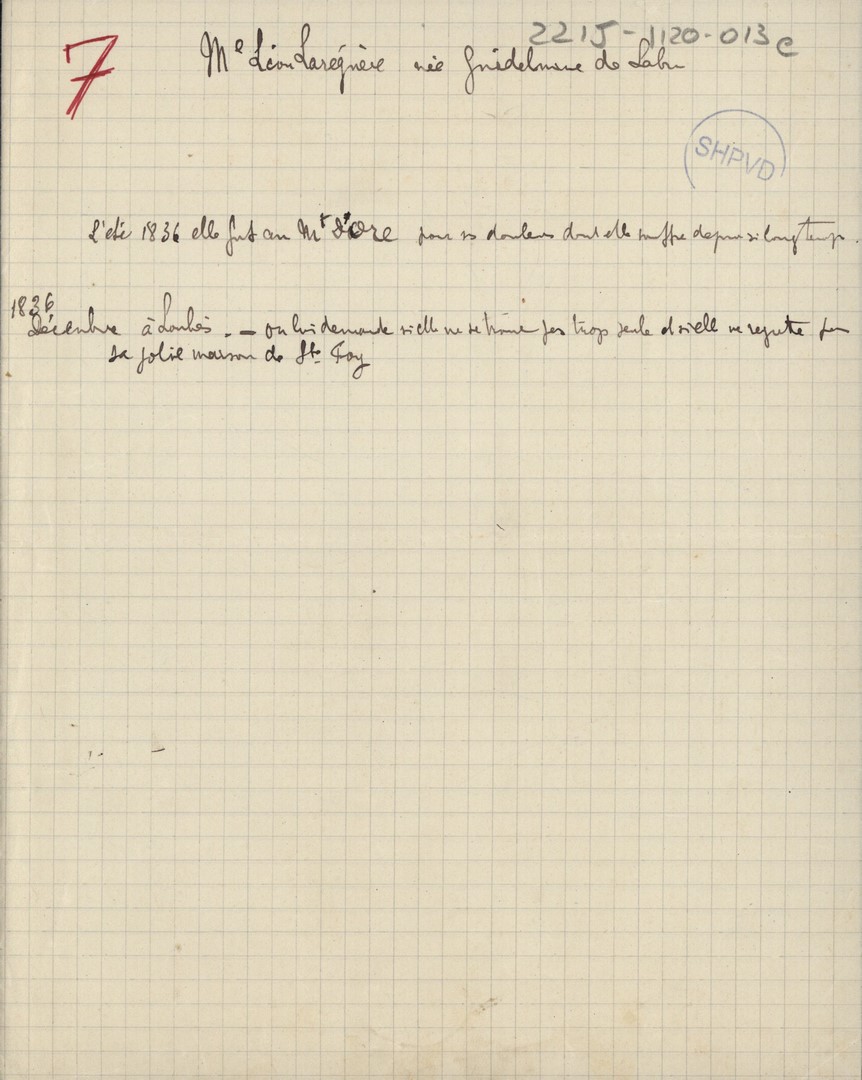 2215-1120-013c
7 Me Léon Laregnère née de Labu
SHPVD
L'été 1836 elle fut au Mt d'Ore pour ses douleurs dont elle souffre depuis si longtemps.
1836
Décembre à Loubès. — on lui demande si elle ne se trouve pas trop seule et si elle ne regrette pas
sa jolie maison de Ste Foy